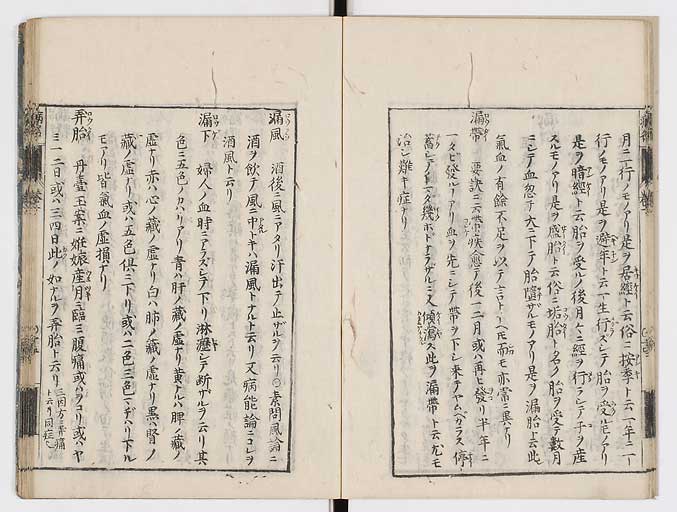 月ニ一行ノモノアリ是ヲ居經ト云俗ニ按季ト云一年ニ一
行ノモノアリ是ヲ避年ト云一生行ズシテ胎ヲ受ルノアリ
是ヲ暗經ト云胎ヲ受ルノ後月々ニ經ヲ行ラシテ子ヲ産
スルモノアリ是ヲ盛胎ト云俗ニ垢胎ト名ク胎ヲ受テ數月
ニシテ血忽チ大ニ下テ胎墮ザルモノアリ是ヲ漏胎ト云此
氣血ノ有餘不足ヲ以テ言トリヘモ而モ亦常ニ異ナリ
漏帶 要訣ニ云帶疾愈テ後一二月或ハ再ヒ發リ半年ニ
一タビ發ルアリ血ヲ先ニシテ帶ヲ下シ来テヤムベカラス停
蓄シテノ幾ホドナラザルニ又傾瀉ス此ヲ漏帶ト云尤モ
治シ難キ症ナリ
漏風 酒後ニ風ニアタリ汗出テ止ザルヲ云リ○素問風論ニ
酒ヲ飲テ風ニ中トキハ漏風トナルト云リ又病能論ニコレヲ
酒風ト云リ
漏下 婦人ノ血時ニアラズシテ下リ淋瀝シテ断ザルヲ云リ其
色ニ五色ノカハリアリ青ハ肝ノ藏ノ虚ナリ黄ナルハ脾ノ藏ノ
虚ナリ赤ハ心ノ藏ノ虚ナリ白ハ肺ノ藏ノ虚ナリ黒ハ腎ノ
藏ノ虚ナリ或ハ五色倶ニ下リ或ハ二色三色マヂハリ下ル
モアリ皆氣血ノ虚損ナリ
弄胎 丹臺玉案ニ姙娠産月ニ臨ミ腹痛或ハヲコリ或ハヤ
ミ一二日或ハ三四日此ノ如ナルヲ弄胎ト云リ
三因方ニ弄痛
ト云リ同症ナリ